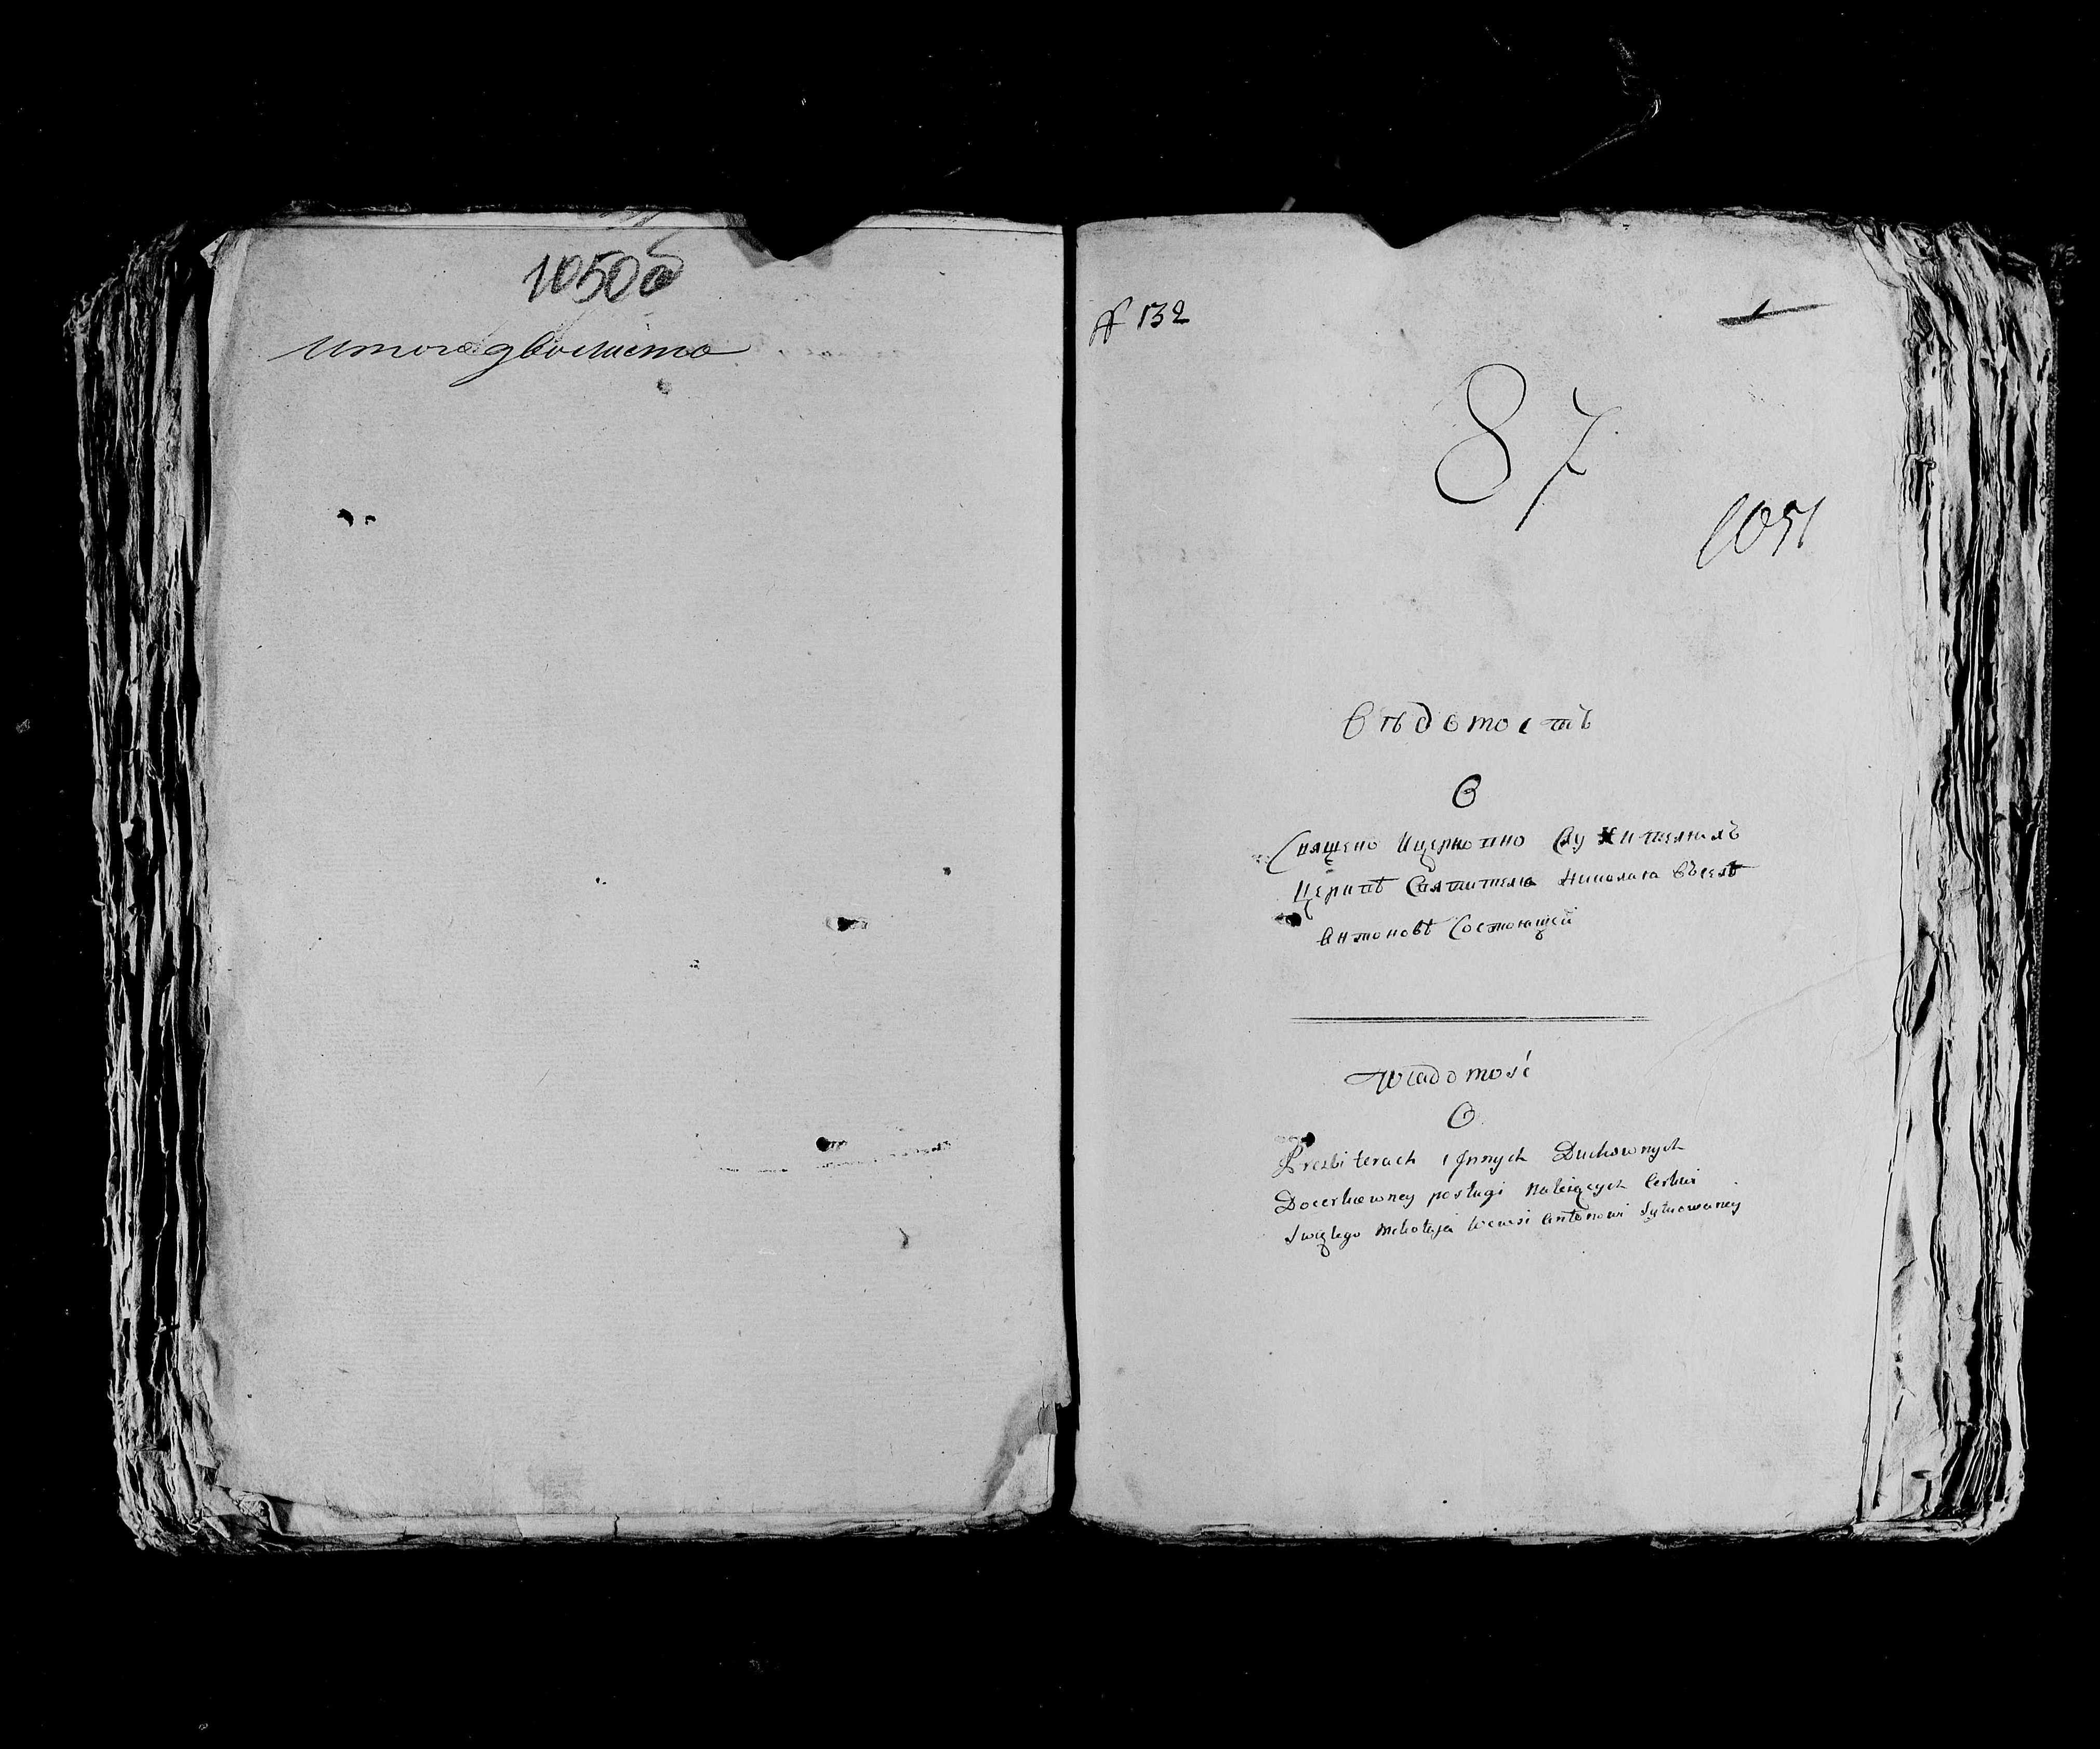 1050об
итого два листа
№ 132
1
87
1051
Вѣдомость
О
Священо Ицерковно Служителяхъ
Церкви Святителя Николая Въселѣ
Антоновѣ Состоящей
Wiadomość
O
Prezbiterach i Jnnych Duchownych
Docerkiewney posługi Należących Cerkwi
Swiętego Mikołaja Wewsi Antonowi Sytuowaney